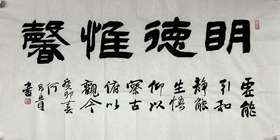 明德惟馨
虚能
引和
静能
生悟
仰以
察古
俯以
觀今
癸卯春
何
書